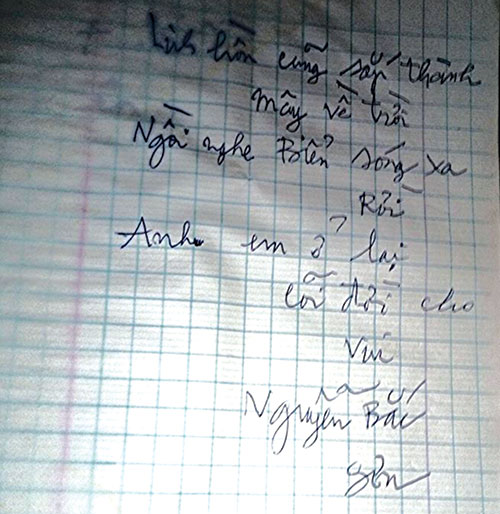 Linh hồn cũng sắp thành
mây về trời
Ngồi nghe Biển sóng xa
Rồi
Anh em ở lại
cõi đời cho
vui
Nguyễn Bắc
Sơn